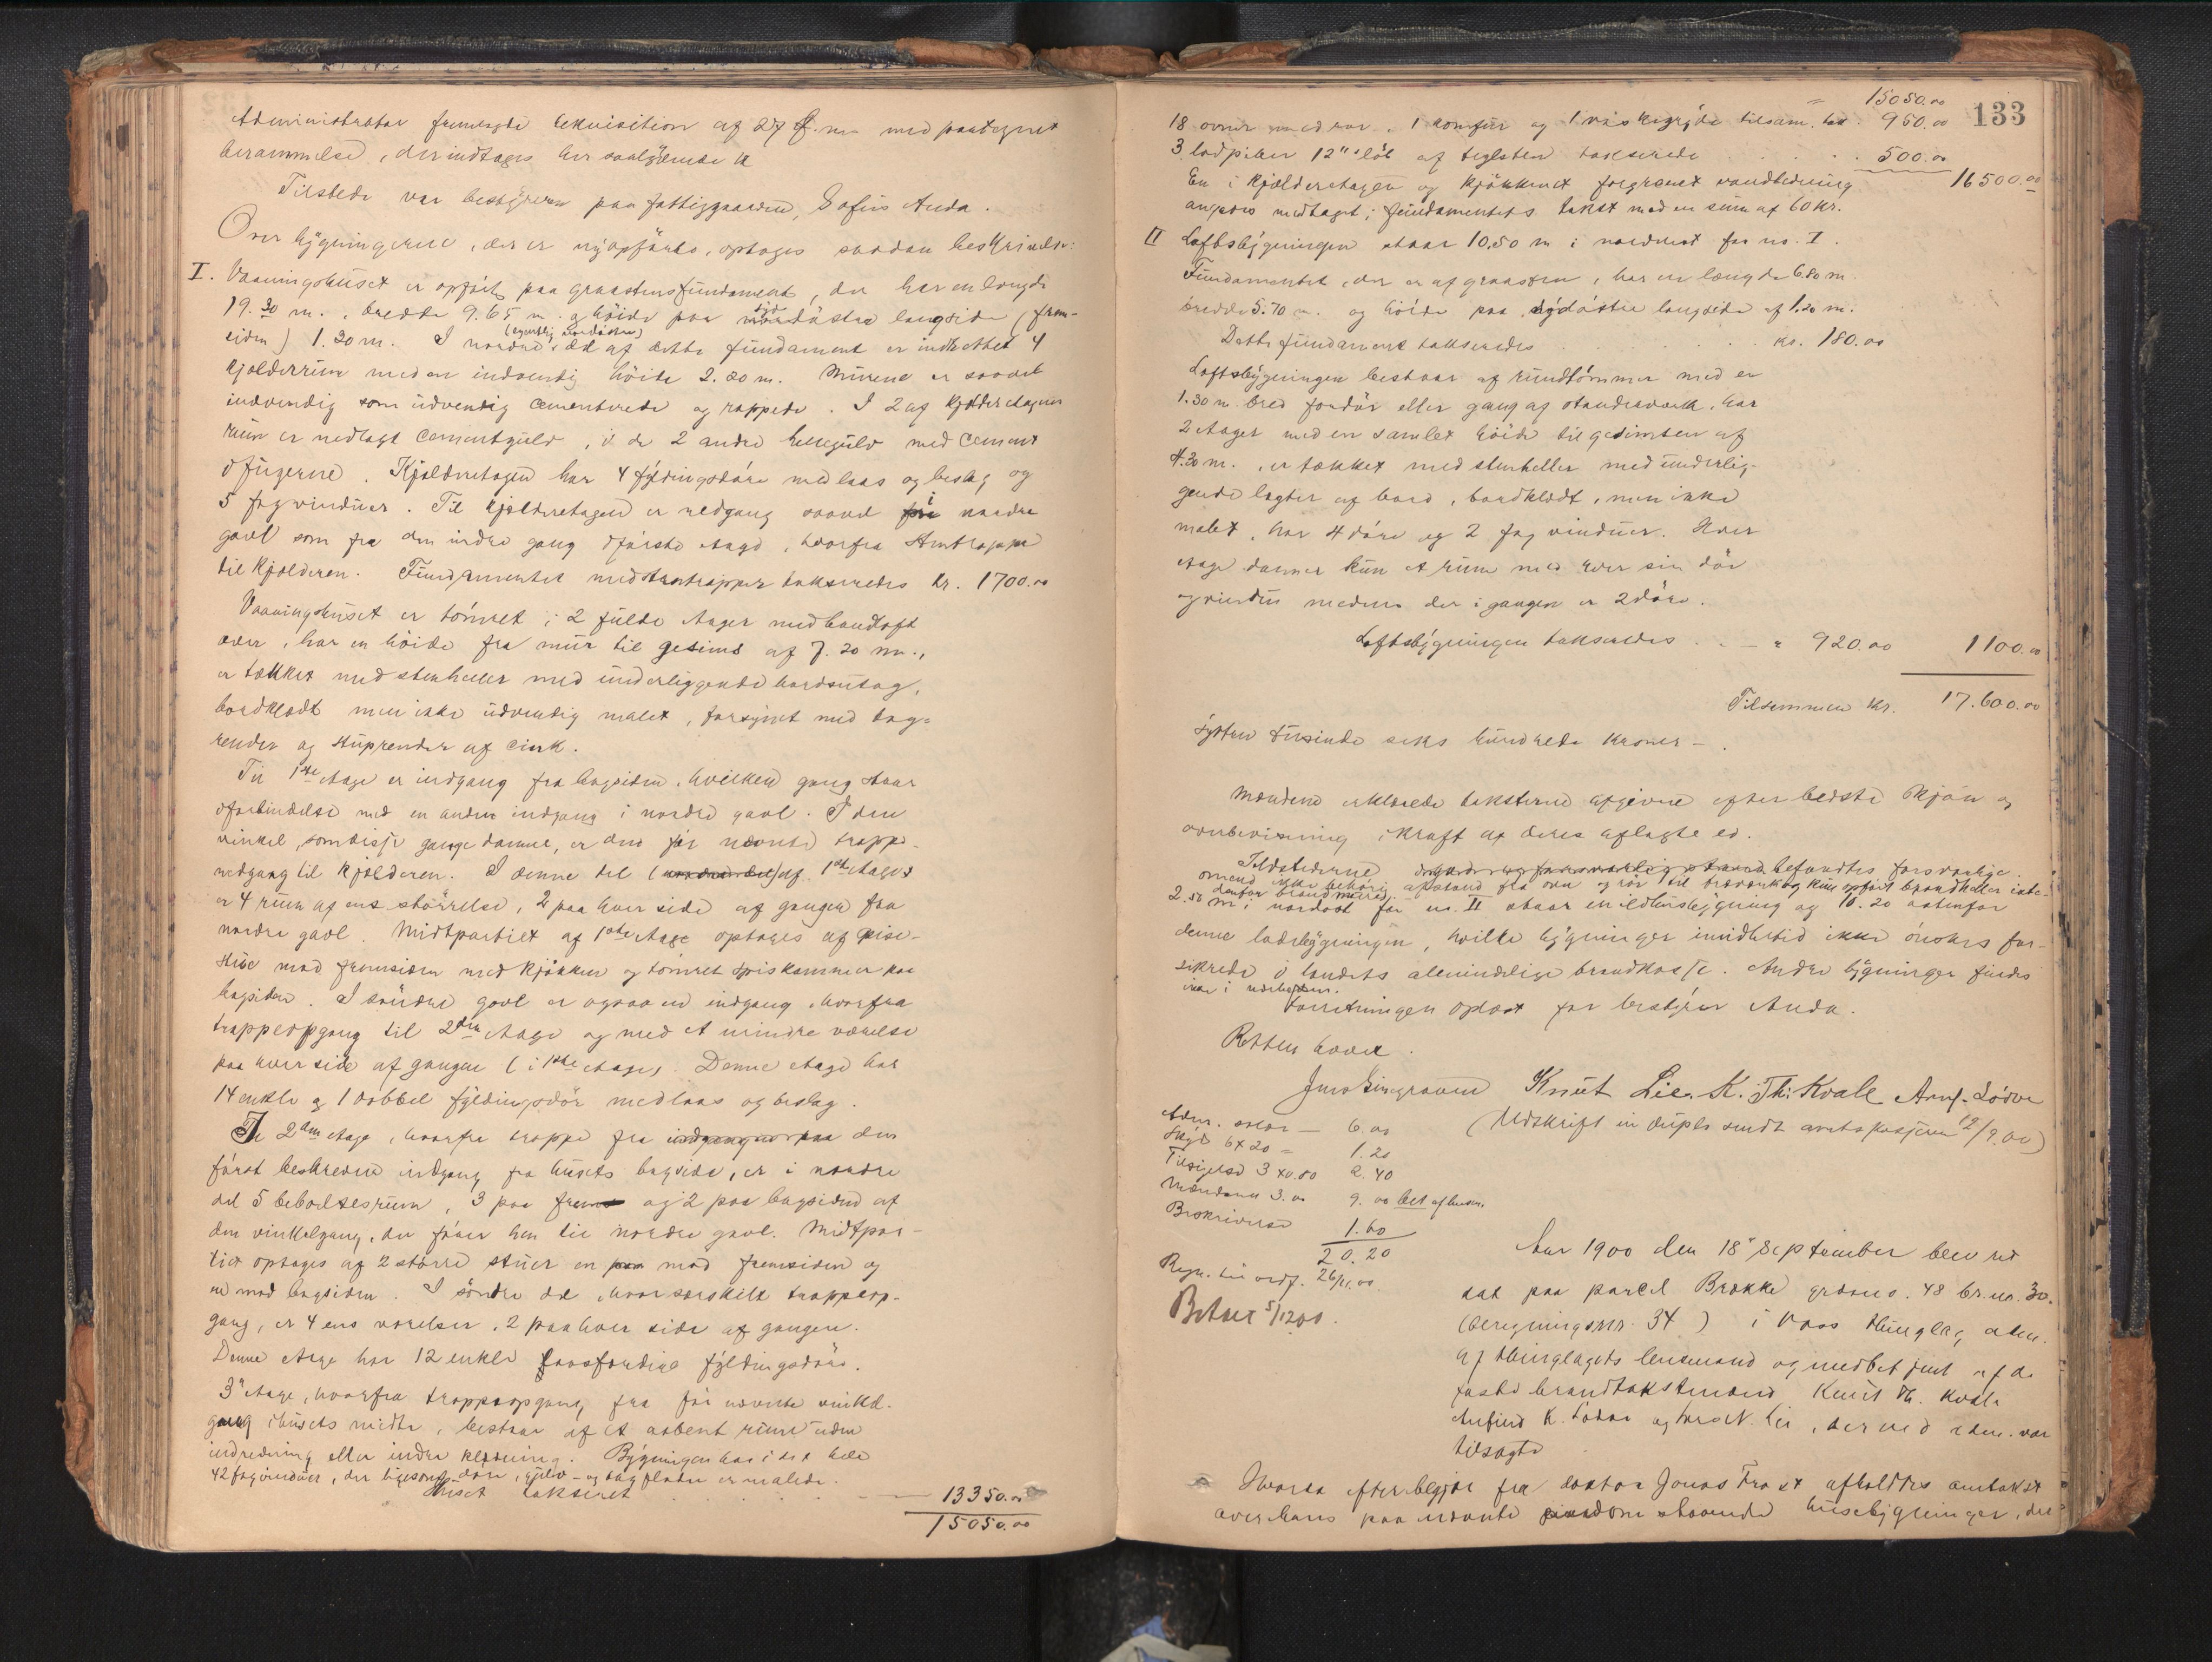 Administrator fremlagde rekvisition af 27 f. m. med paategnet
berammelse, der indtages her saalydende #
Tilstede var bestyreren paa fattiggaarden, Sofus Anda.
Over bygningerne, der er nyopførte, optages saadan beskrivelse:
I. Vaaningshuset er opført paa graastensfundament, der har en længde
19.30 m., bredde 9.65 m. og høide paa syd østre langside (frem-
siden) 1.20 m. I nordre (egentlig nordøstre) del af dette fundament er indrettet 4
kjælderrum med en indvendig høide 2.20 m. Murene er saavel
indvendig som udvendig cementerede og rappede. I 2 af kjælderetagens
rum er nedlagt cementgulv, i de 2 andre hellegulv med cement
i fugerne. Kjælderetagen har 4 fyldingsdøre med laas og beslag og
5 fag vinduer. Til kjælderetagen er nedgang saavel i nordre
gavl som fra den indre gang i første etage, hvorfra stentrappe
til kjælderen. Fundamentet med stentrapper takseredes kr. 1700.00
Vaaningshuset er tømret i 2 fulde etager med bordloft
over, har en høide fra mur til gesims af 7.20 m.,
er tækket med stenheller med underliggende bordsutag,
bordklædt men ikke udvendig malet, forsynet med tag-
render og stuprender af zink.
Til 1ste etage er indgang fra bagsiden, hvilken gang staar
i forbindelse med en anden indgang i nordre gavl. I den
vinkel, som disse gange danner, er den før nævnte trappe-
nedgang til kjælderen. I denne del (nordre del) af 1ste etage
er 4 rum af ens størrelse, 2 paa hver side af gangen fra
nordre gavl. Midtpartiet af 1ste etage optages af spise-
stue mod fremsiden med kjøkken og tømret spiskammer paa
bagsiden. I søndre gavl er ogsaa en indgang, hvorfra
trappeopgang til 2den etage og med et mindre værelse
paa hver side af gangen (i 1ste etage). Denne etage har
14 enkle og 1 dobbel fyldingsdør med laas og beslag.
I 2den etage, hvorfra trappe fra den
først beskrevne indgang fra husets bagside, er i nordre
del 5 beboelsesrum, 3 paa frem og 2 paa bagsiden af
den vinkelgang, der fører hen til nordre gavl. Midtpar-
tiet optages af 2 større stuer en mod fremsiden og
en mod bagsiden. I søndre del, hvor særskilt trappeop-
gang, er 4 ens værelser, 2 paa hver side af gangen.
Denne etage har 12 enkle laasfærdige fyldingsdøre.
3die etage, hvorfra trappeopgang fra før nævnte vinkel-
gang i husets midte, bestaar af et aabent rum uden
indredning eller indre klædning. Bygningen har i det hele
42 fag vinduer, der ligesom døre, gulv- og tagflader er malede.
Huset takseret 13350.00
15050.00
133
15050.00
18 ovner med rør, 1 komfur og 1 vaskegryde tilsam. tax. 950.00
3 ladpiber 12" løb af teglsten takserede 500.00
16500.00
En i kjælderetagen og kjøkkenet forgrenet vandledning
ansees medtaget i fundamentets takst med en sum af 60 kr.
II Loftsbygningen staar 10.50 m i nordvest for no. I.
Fundamentet, der er af graasten, har en længde 6.80 m.
bredde 5.70 m. og høide paa sydøstre langside af 1.20 m.
Dette fundament takseredes kr. 180.00
Loftsbygningen bestaar af rundtømmer med en
1.30 m. bred fordør eller gang af standerværk, har
2 etager med en samlet høide til gesimsen af
4.30 m., er tækket med stenheller med underlig-
gende lægter af bord, bordklædt, men ikke
malet, har 4 døre og 2 fag vinduer. Hver
etage danner kun et rum med hver sin dør
og vindu medens der i gangen er 2 døre.
Loftsbygningen takseredes — " 920.00 1100.00
Tilsammen kr. 17.600.00
Sytten tusinde seks hundrede kroner —.
Mændene erklærede taksterne afgivne efter bedste skjøn og
overbevisning i kraft af deres aflagte ed.
Ildstederne befandtes forsvarlige,
omend ikke behørig afstand fra ovn og rør til træværk og kun opført brandheller iste-
denfor brandmure.
2.50 m i nordost for no. II staar en ildhusbygning og 10.20 østenfor
denne ladebygningen, hvilke bygninger imidlertid ikke ønskes for-
sikrede i landets almindelige brandkasse. Andre bygninger findes
ikke i nærheden.
Forretningen oplæst for bestyrer Anda.
Retten hævet.
Knut Lie. K. Th: Kvale Arnf. Lødve
(Udskrift in duplo sendt amtskassjeren 12/9.00)
Adm. salær — 6.00
Skyds 6 x 20 = 1.20
Tilsigelse 3 x 0.80 2.40
Mændene 3.00 9.00 bet af lensm.
Beskrivelse 1.60
20.20
Regn. til ordf. 26/11.00
Betalt 5/12 00.
Aar 1900 den 18de September blev ret
sat paa parcel Brække grdsno. 48 br.no. 30.
(beregningsnr. 34) i Voss thinglag, adm.
af thinglagets lensmand og medbetjent af de
faste brandtakstmænd Knut Th. Kvale
Arnfind K. Lødve og Lie, der ved adm. var
tilsagte
Hvorda efter begjær fra doktor Jonas Frost afholdtes omtakst
over hans paa nævnte eiendom staaende husebygninger, der